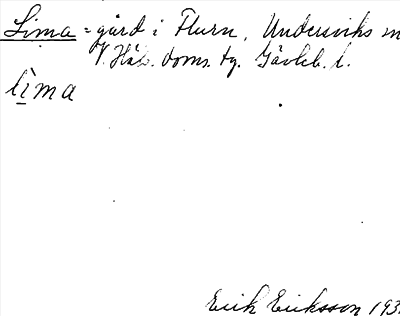 Lima = gård i Flurn, Underviks sn
V. Häls. doms. tg. Gävleb. l.
lìma
Erik Eriksson 193